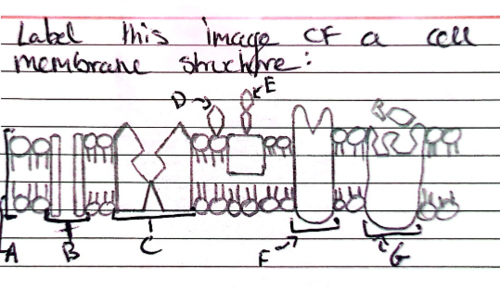 Label this image of a cell
membrane structure:
D E
A B C F G